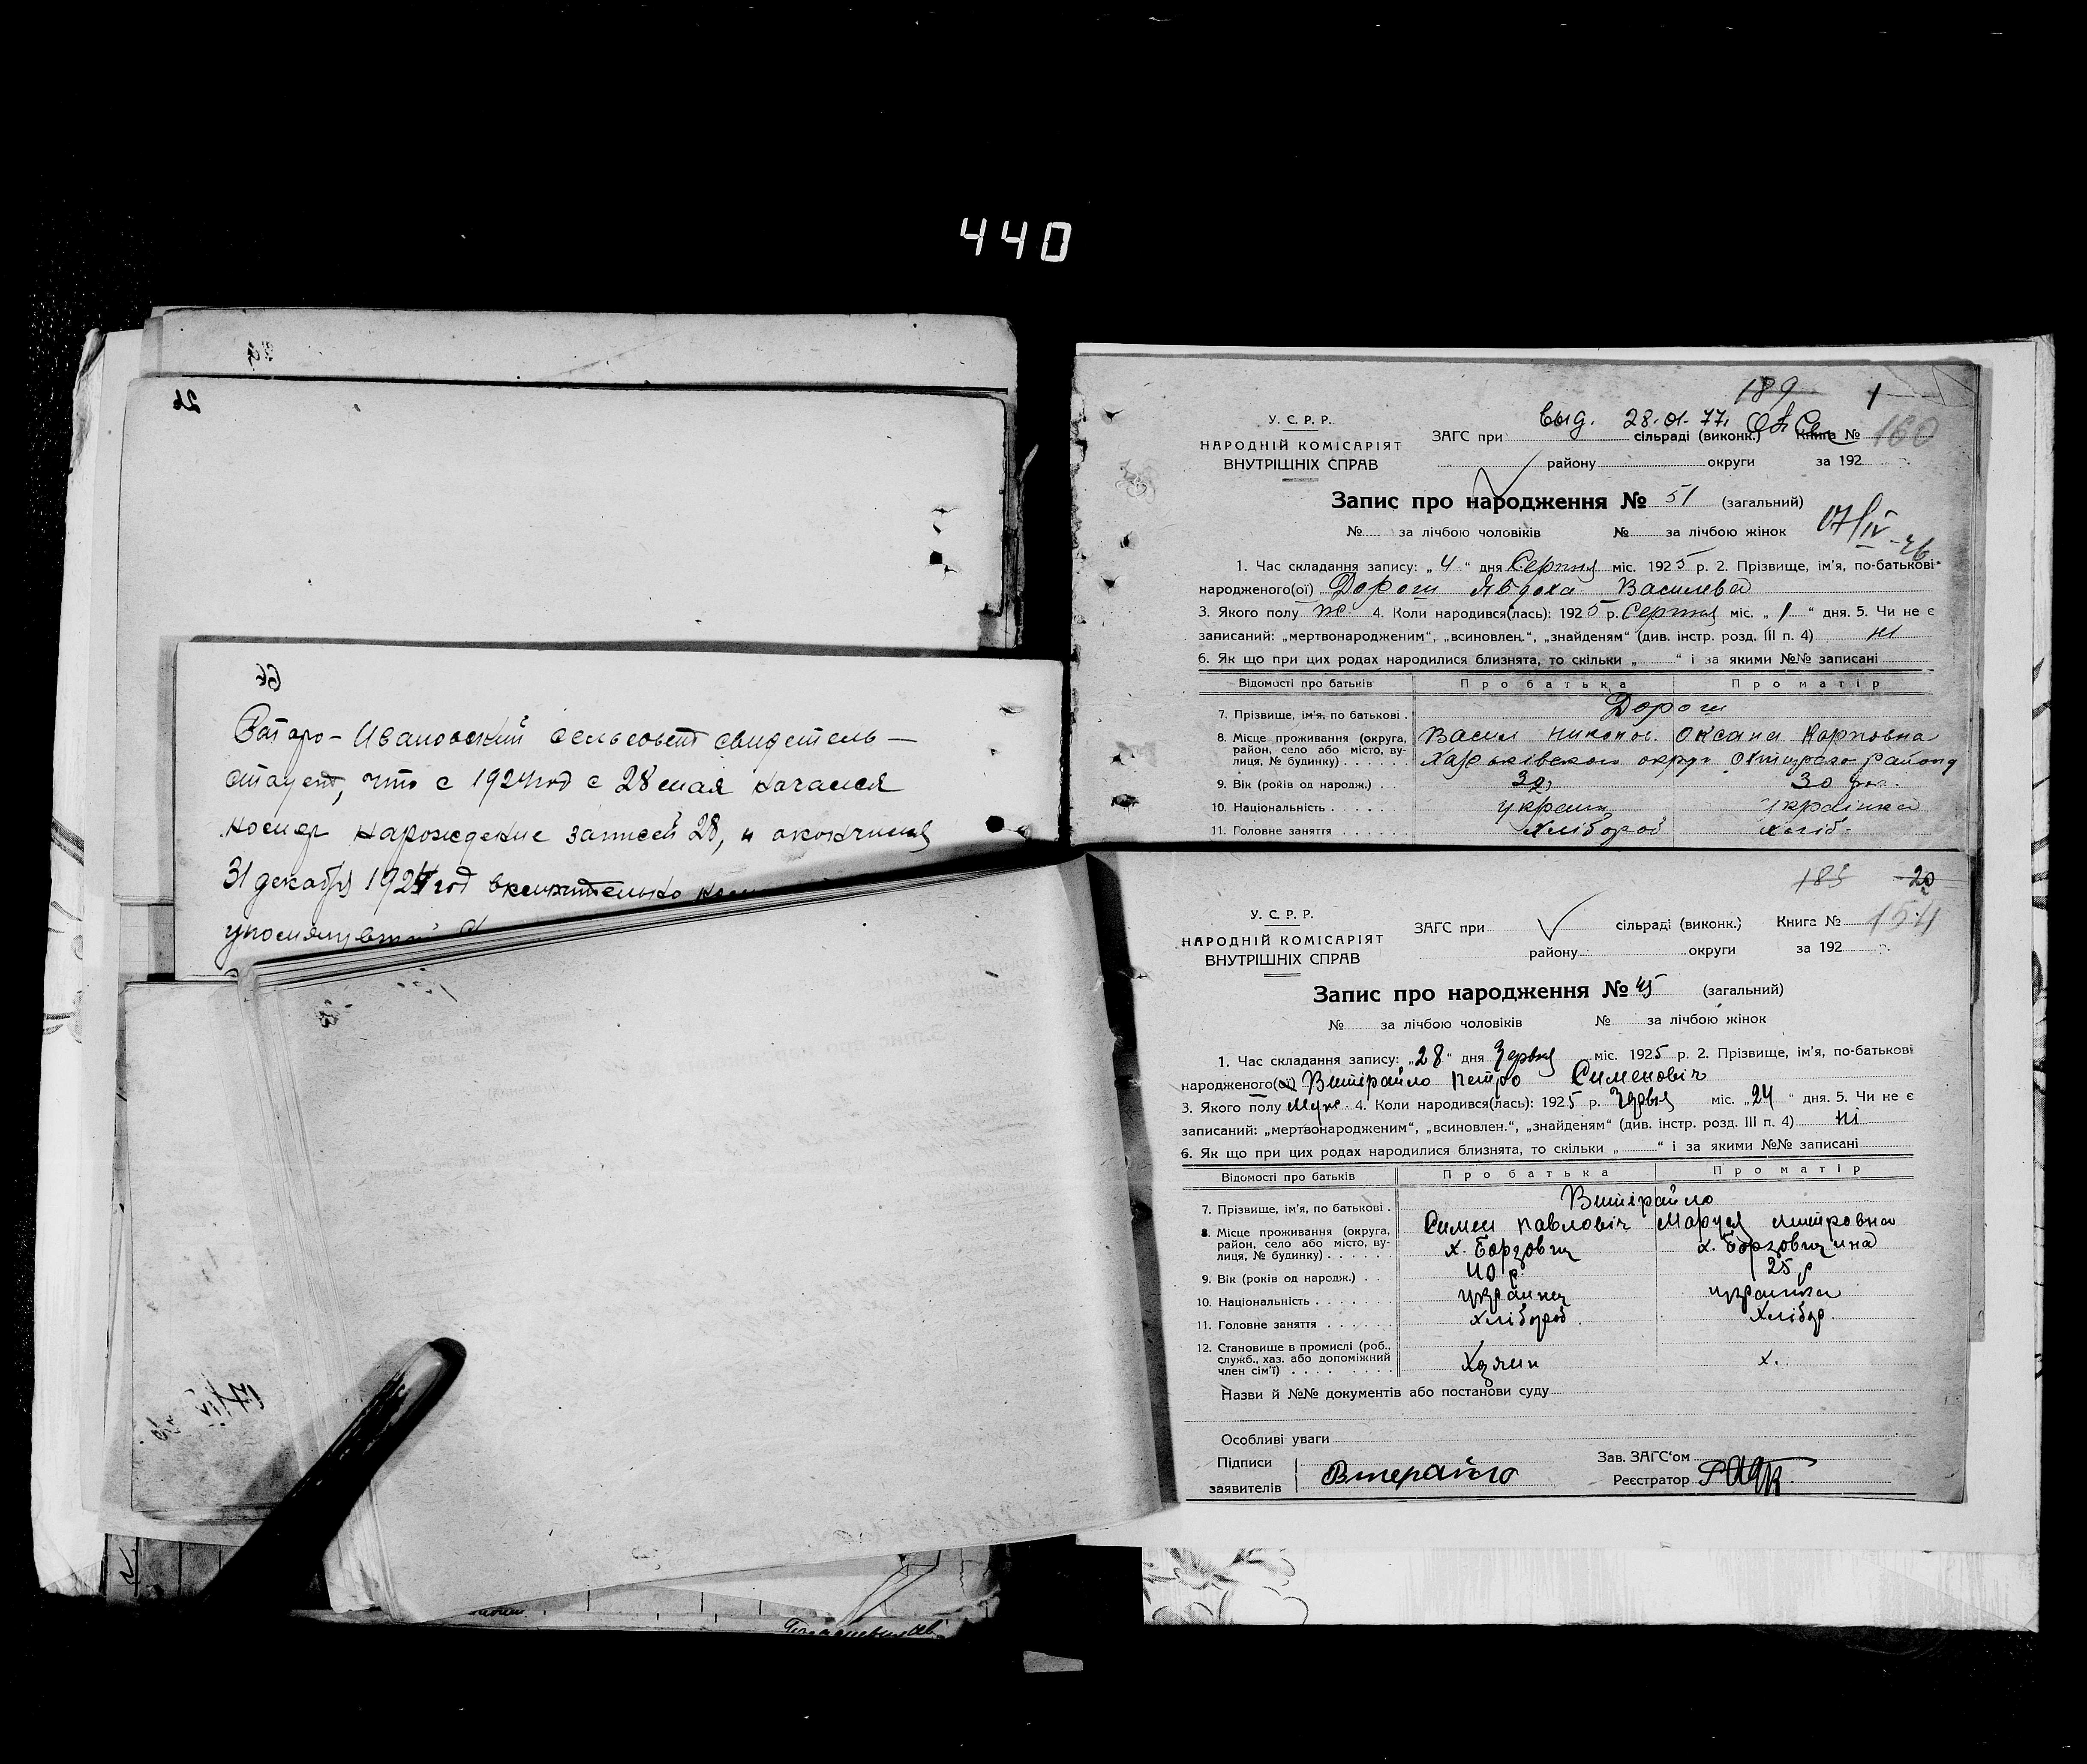 440
26
66
Ивановский сельсовет свидетель-
что с 1924 год с 28 мая начался
номер нарождение записей 28, и
31 декабря 1924 год включительно
189 1
выд. 28.01.77.
У. С. Р. Р.
НАРОДНІЙ КОМІСАРІЯТ
ВНУТРІШНІХ СПРАВ
ЗАГС при сільраді (виконк.) Книга № 160
району округи за 192 р.
Запис про народження № 51 (загальний)
№ за лічбою чоловіків № за лічбою жінок
17/IV-76
1. Час складання запису: „4“ дня Серпня міс. 1925 р. 2. Прізвище, ім'я, по-батькові
народженого(ої) Дорош Явдоха Василева
3. Якого полу ж. 4. Коли народився(лась): 1925 р. Серпня міс. „1“ дня. 5. Чи не є
записаний: „мертвонародженим“, „всиновлен.“, „знайденям“ (див. інстр. розд. III п. 4) ні
6. Як що при цих родах народилися близнята, то скільки „ “ і за якими №№ записані
Відомості про батьків Про батька Про матір
Дорош
7. Прізвище, ім'я, по батькові .
8. Місце проживання (округа, Васил Оксана Карповна
район, село або місто, ву-
лиця, № будинку) . . . . . Харьківского округ району
9. Вік (років од народж.) . . 32 30
10. Національність . . . . . украин украінка
11. Головне заняття . . . . . Хлібороб хліб.
185 20
У. С. Р. Р.
НАРОДНІЙ КОМІСАРІЯТ
ВНУТРІШНІХ СПРАВ
ЗАГС при сільраді (виконк.) Книга № 154
району округи за 192 р.
Запис про народження № 45 (загальний)
№ за лічбою чоловіків № за лічбою жінок
1. Час складання запису: „28“ дня Червня міс. 1925 р. 2. Прізвище, ім'я, по-батькові
народженого(ої) Витірайло Петро Сименовіч
3. Якого полу Муж. 4. Коли народився(лась): 1925 р. Червня міс. „24“ дня. 5. Чи не є
записаний: „мертвонародженим“, „всиновлен.“, „знайденям“ (див. інстр. розд. III п. 4) ні
6. Як що при цих родах народилися близнята, то скільки „ “ і за якими №№ записані
Відомості про батьків Про батька Про матір
Витірайло
7. Прізвище, ім'я, по батькові .
Симен Павловіч Маруся Митровна
8. Місце проживання (округа,
район, село або місто, ву-
лиця, № будинку) . . . . . х. Борзовщ х. Борзовщина
9. Вік (років од народж.) . . 40 р. 25 р
10. Національність . . . . . украинец украинка
11. Головне заняття . . . . . хлібороб. Хлібор.
12. Становище в промислі (роб.,
служб., хаз. або допоміжний
член сім'ї) . . . . . Хазяин х.
Назви й №№ документів або постанови суду
Особливі уваги
Підписи
заявителів Втерайло
Зав. ЗАГС'ом
Реєстратор